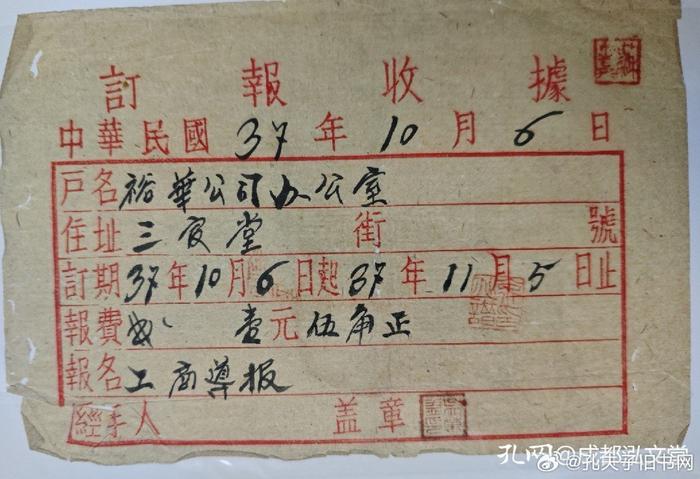 訂報收據
中華民國37年10月6日
戶名裕華公司办公室
住址三官堂街號
訂期37年10月6日起37年11月5日止
報費 壹元伍角正
報名工商導报
經手人 盖章
孔网@成都泓文堂
@孔夫子旧书网